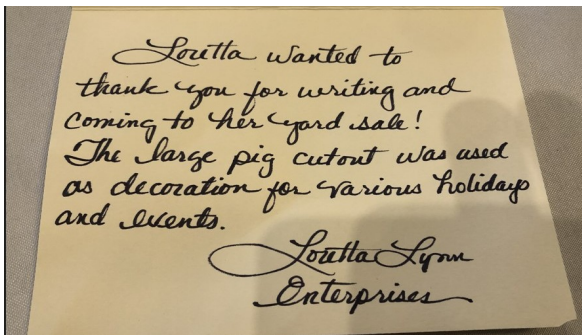 Loretta wanted to
thank you for writing and
coming to her yard sale!
The large pig cutout was used
as decoration for various holidays
and events.
Loretta Lynn
Enterprises